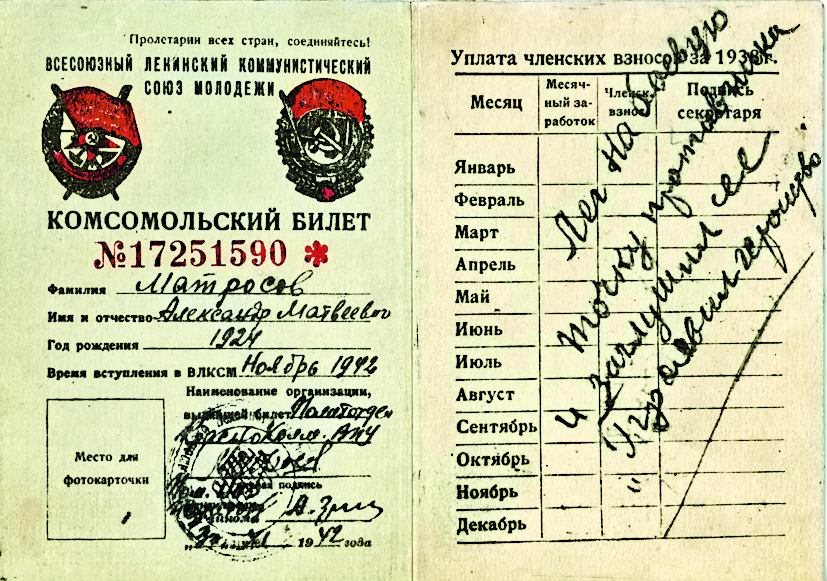 Пролетарии всех стран, соединяйтесь!
ВСЕСОЮЗНЫЙ ЛЕНИНСКИЙ КОММУНИСТИЧЕСКИЙ
СОЮЗ МОЛОДЕЖИ
КОМСОМОЛЬСКИЙ БИЛЕТ
№17251590 *
Фамилия Матросов
Имя и отчество Александр Матвеевич
Год рождения 1924
Время вступления в ВЛКСМ Ноябрь 1942
Наименование организации,
выдавшей билет Политотдел
Краснохолм. ВПУ
подпись
1942 года
Место для
фотокарточки
Уплата членских взносов за 1938 г.
Месяц
Месяч-
ный за-
работок
Членск.
взнос
Подпись
секретаря
Январь
Февраль
Март
Апрель
Май
Июнь
Июль
Август
Сентябрь
Октябрь
Ноябрь
Декабрь
Лег на боевую
точку противника
и заглушил ее
проявил геройство.